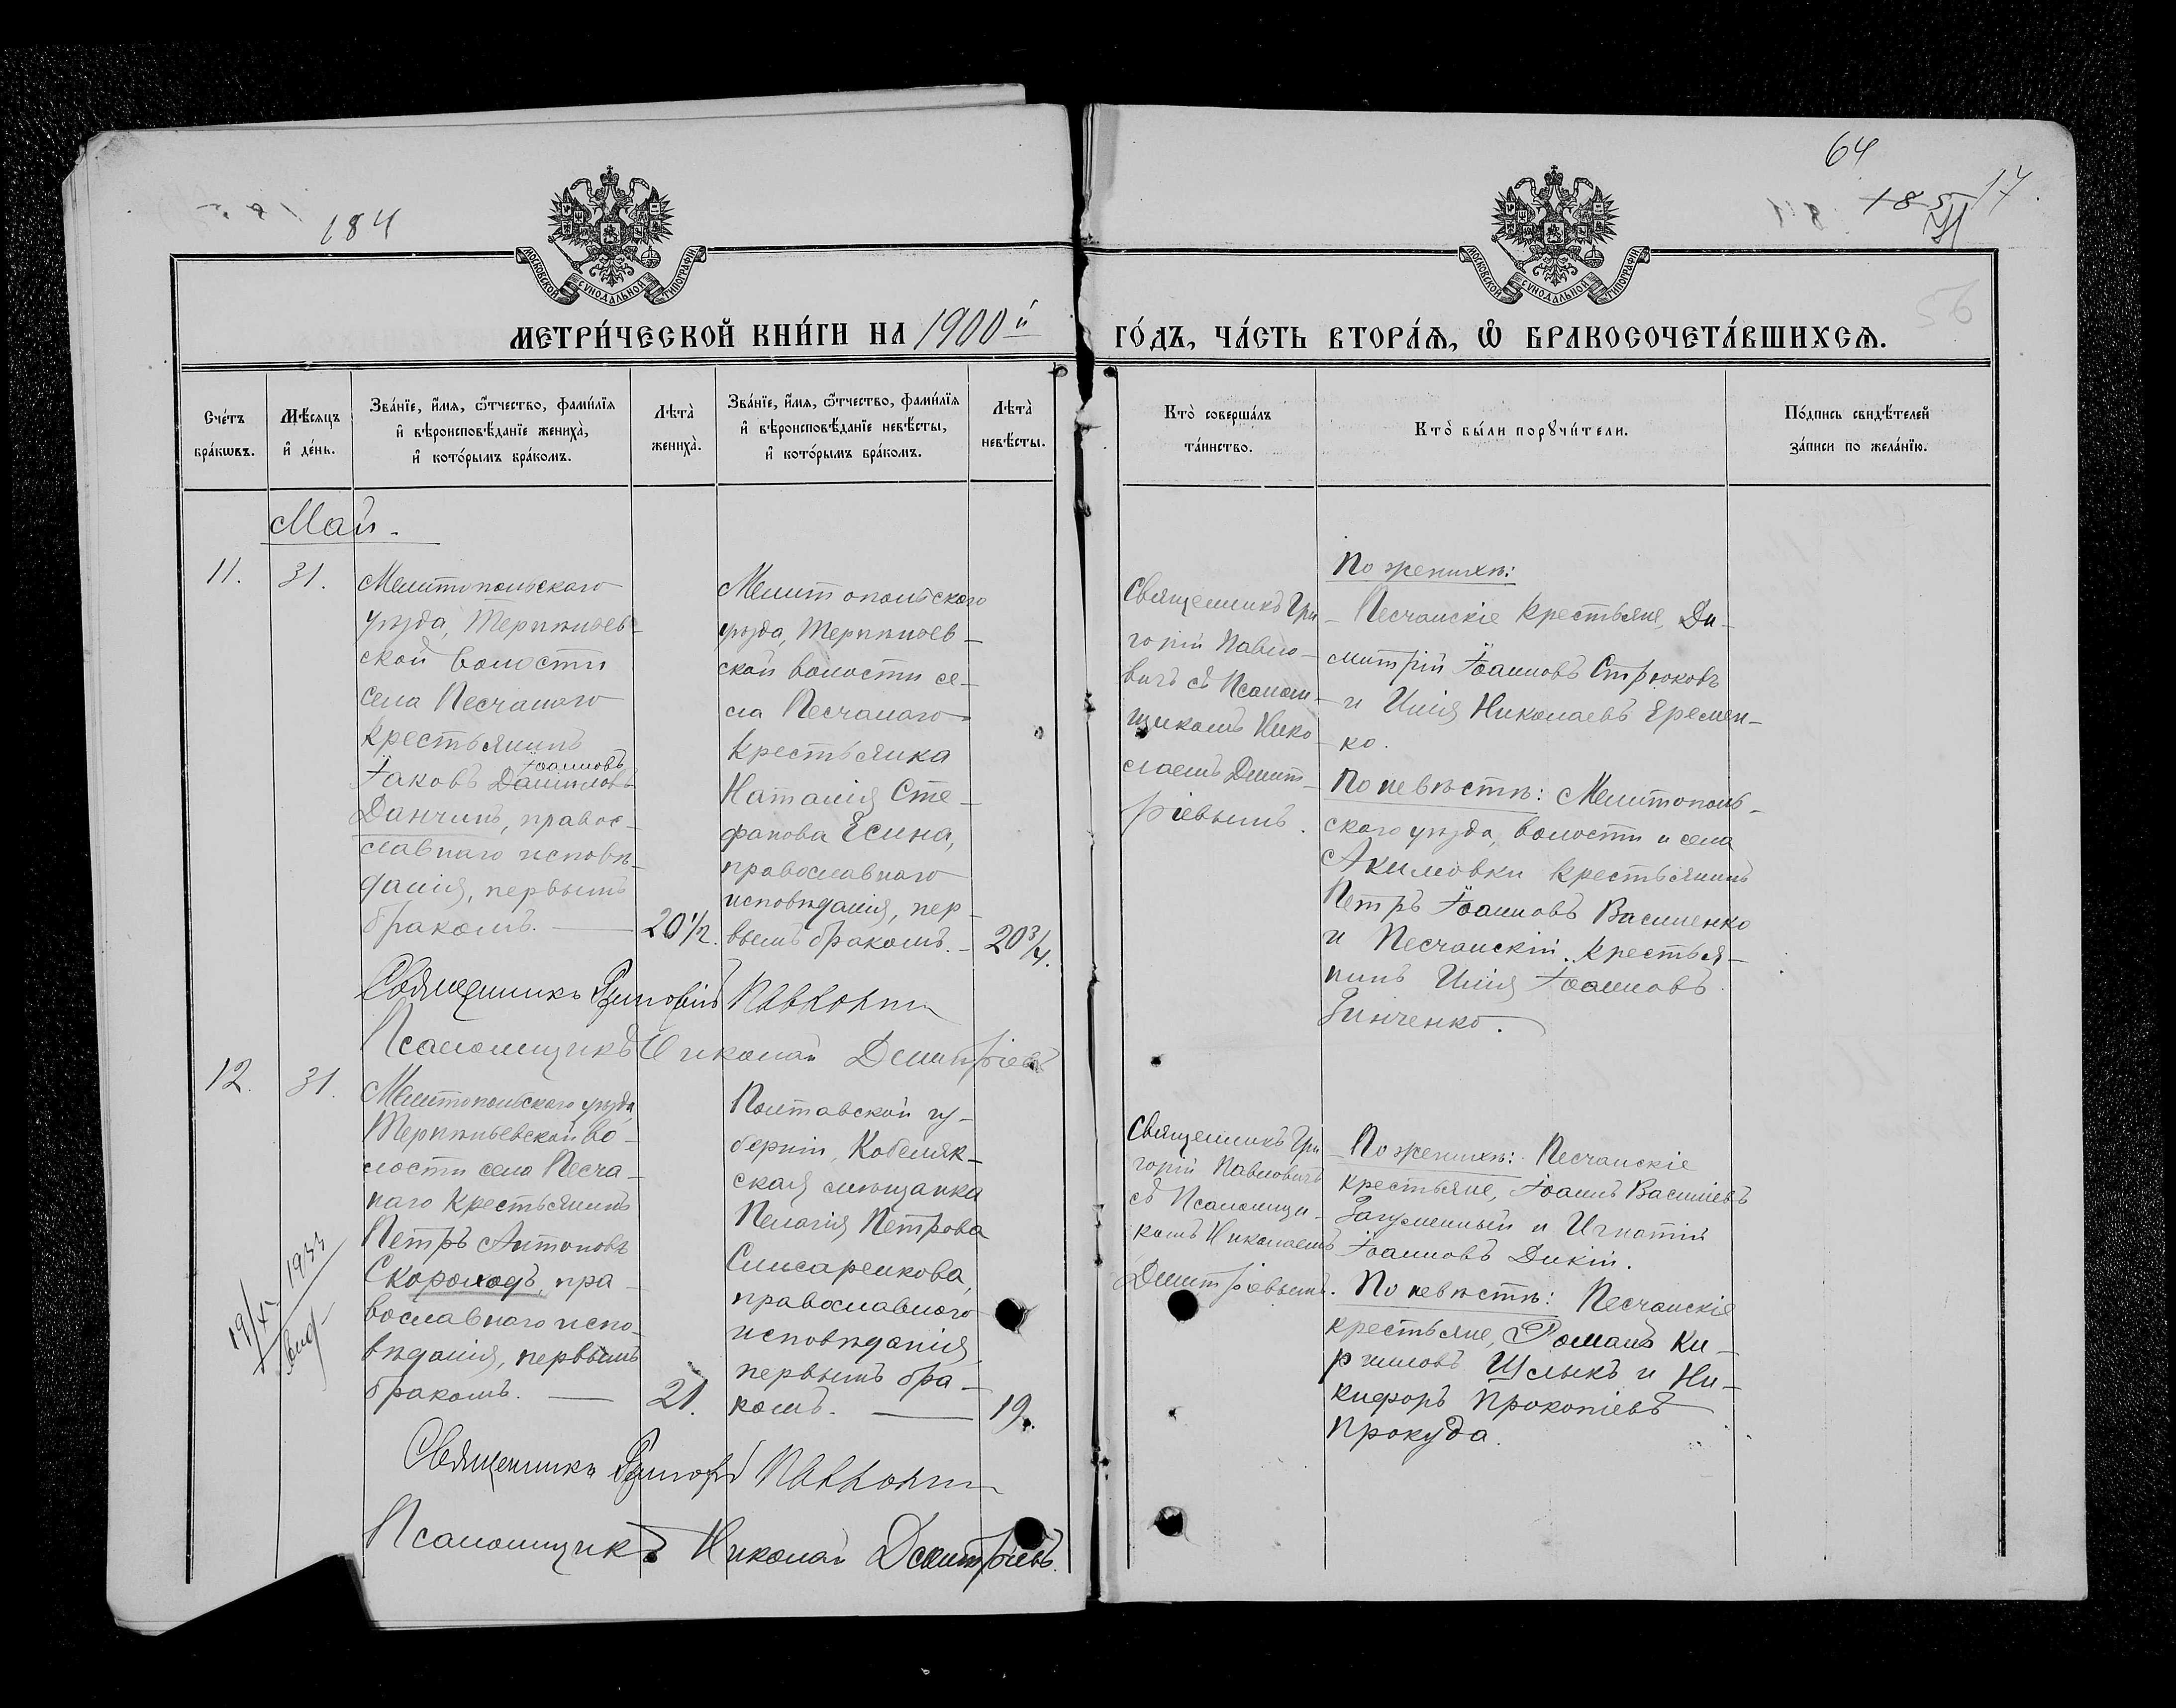 64
184
185
17
МОСКОВСКОЙ СУНОДАЛЬНОЙ ТИПОГРАФІИ
МОСКОВСКОЙ СУНОДАЛЬНОЙ ТИПОГРАФІИ
56
МЕТРИ́ЧЕСКОЙ КНИ́ГИ НА 1900й
ГО́ДЪ, ЧА́СТЬ ВТОРА́Ѧ, Ѿ БРАКОСОЧЕТА́ВШИХСѦ.
Сче́тъ
бра́кѡвъ.
Мѣ́сяцъ
и҆ де́нь.
Зва́нїе, и҆́мѧ, ѻ҆́тчество, фами́лїѧ
и҆ вѣроисповѣ́данїе жениха̀,
и҆ кото́рымъ бра́комъ.
Лѣта̀
жениха̀.
Зва́нїе, и҆́мѧ, ѻ҆́тчество, фами́лїѧ
и҆ вѣроисповѣ́данїе невѣ́сты,
и҆ кото́рымъ бра́комъ.
Лѣта̀
невѣ́сты.
Кто̀ соверша́лъ
та́инство.
Кто̀ бы́ли порꙋчи́тели.
По́дпись свидѣ́телей
за́писи по жела́нїю.
Май.
11.
31.
Мелитопольскаго
уѣзда, Терпѣніев-
ской волости
села Песчанаго
крестьянинъ
Іоанновъ
Іаковъ Даніиловъ
Данчинъ, правос-
славнаго исповѣ-
данія, первымъ
бракомъ.
20 1/2.
Мелитопольскаго
уѣзда, Терпѣніев-
ской волости се-
ла Песчанаго
крестьянка
Наталія Сте-
фанова Есина,
православнаго
исповѣданія, пер-
вымъ бракомъ.
20 3/4.
Священникъ Гри-
горій Павло-
вичъ съ Псалом-
щикомъ Нико-
лаемъ Димит-
ріевымъ.
По женихѣ:
Песчанскіе крестьяне, Ди-
митрій Іоанновъ Стрюковъ
и Илія Николаевъ Еремен-
ко.
По невѣстѣ: Мелитополь-
скаго уѣзда, волости и села
Акимовки крестьянинъ
Петръ Іоанновъ Василенко
и Песчанскій крестья-
нинъ Илія Іоанновъ
Зинченко.
Священникъ Григорій Павловичъ
Псаломщикъ Николай Димитріевъ
12.
31.
Мелитопольскаго уѣзда,
Терпѣніевской во-
лости села Песча-
наго крестьянинъ
Петръ Антоновъ
Скороходъ, пра-
вославнаго испо-
вѣданія, первымъ
бракомъ.
21.
Полтавской гу-
берніи, Кобеляк-
ская мѣщанка
Пелагія Петрова
Слисаренкова,
православнаго
исповѣданія,
первымъ бра-
комъ.
19.
Священникъ Гри-
горій Павловичъ
съ Псаломщи-
комъ Николаемъ
Димитріевымъ.
По женихѣ: Песчанскіе
крестьяне, Іоаннъ Василіевъ
Загуменный и Игнатій
Іоанновъ Дикій.
По невѣстѣ: Песчанскіе
крестьяне, Романъ Ки-
рилловъ Шлыкъ и Ни-
кифоръ Прокопіевъ
Прокуда.
19/X 1933
Священникъ Григорій Павловичъ
Псаломщикъ Николай Димитріевъ.